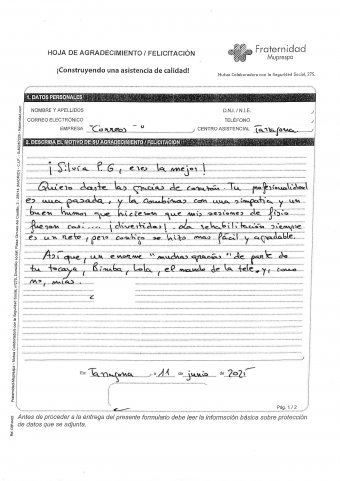 HOJA DE AGRADECIMIENTO / FELICITACIÓN
Fraternidad
Muprespa
¡Construyendo una asistencia de calidad!
Mutua Colaboradora con la Seguridad Social, 275.
1. DATOS PERSONALES
NOMBRE Y APELLIDOS
D.N.I. / N.I.E.
CORREO ELECTRÓNICO
TELÉFONO
EMPRESA Correos
CENTRO ASISTENCIAL Tarragona
2. DESCRIBA EL MOTIVO DE SU AGRADECIMIENTO / FELICITACIÓN
¡Silvia P.G, eres la mejor!
Quiero darte las gracias de corazón. Tu profesionalidad
es una pasada, y la combinas con una simpatía y un
buen humor que hicieron que mis sesiones de fisio
fueran casi.... ¡divertidas! La rehabilitación siempre
es un reto, pero contigo se hizo mas fácil y agradable.
Así que, un enorme "muchas gracias" de parte de
tu tocaya, Bimba, Lola, el mando de la tele, y, como
no, mías.
En Tarragona 11 de junio de 2025
Pág. 1 / 2
Antes de proceder a la entrega del presente formulario debe leer la información básica sobre protección
de datos que se adjunta.